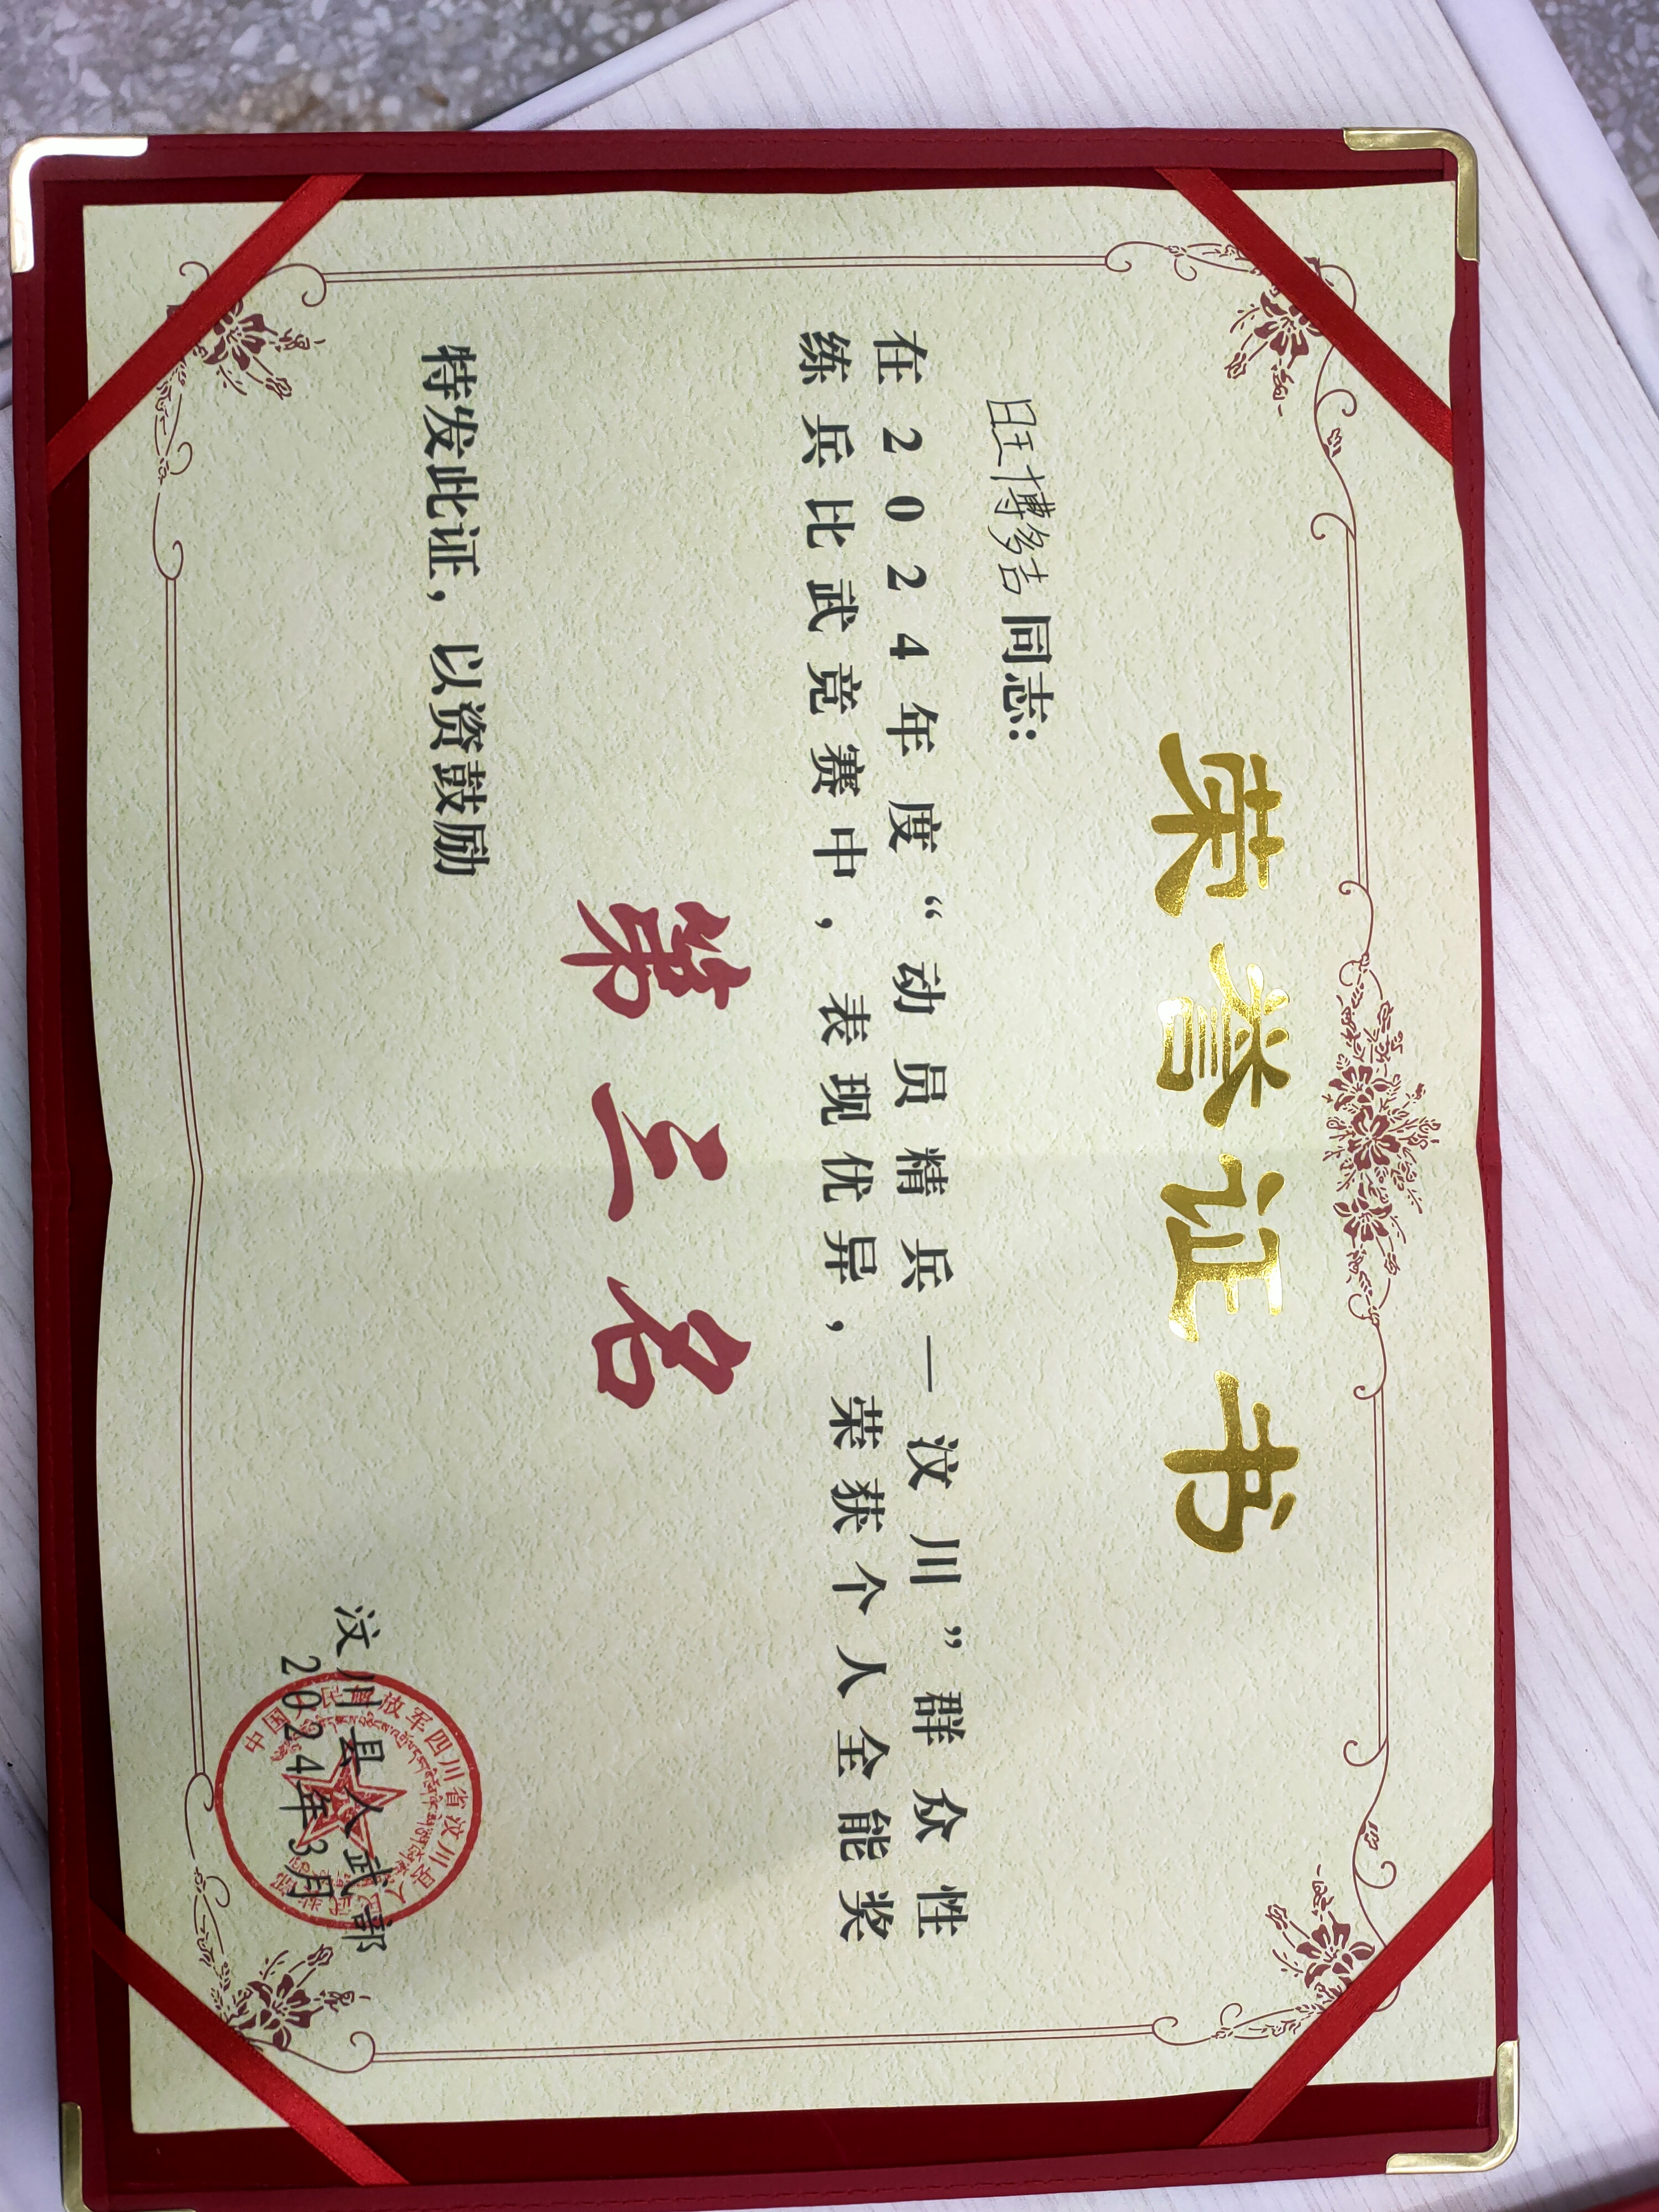 荣誉证书
旺博多吉同志：
在2024年度“动员精兵—汶川”群众性
练兵比武竞赛中，表现优异，荣获个人全能奖
第三名
特发此证，以资鼓励
汶川县人武部
2024年3月
中国人民解放军四川省汶川县人民武装部